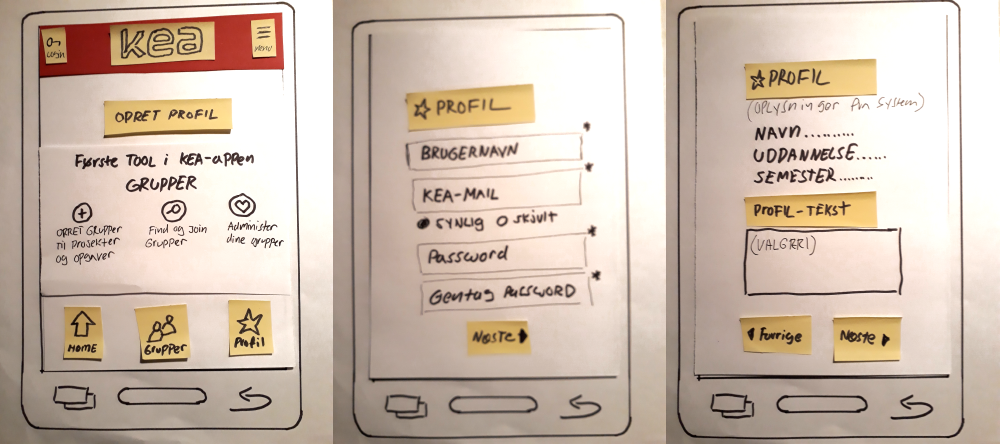 Login
kea
MENU
OPRET PROFIL
Første TOOL i KEA-appen
GRUPPER
OPRET Grupper
til projekter
og opgaver
Find og Join
Grupper
Administer
dine grupper
HOME
Grupper
Profil
PROFIL
BRUGERNAVN *
KEA-MAIL *
SYNLIG O SKJULT
Password *
Gentag PASSWORD *
NÆSTE
PROFIL
(OPLYSNINGER fra System)
NAVN..........
UDDANNELSE......
SEMESTER........
PROFIL-TEKST
(VALGFRI)
Forrige
Næste